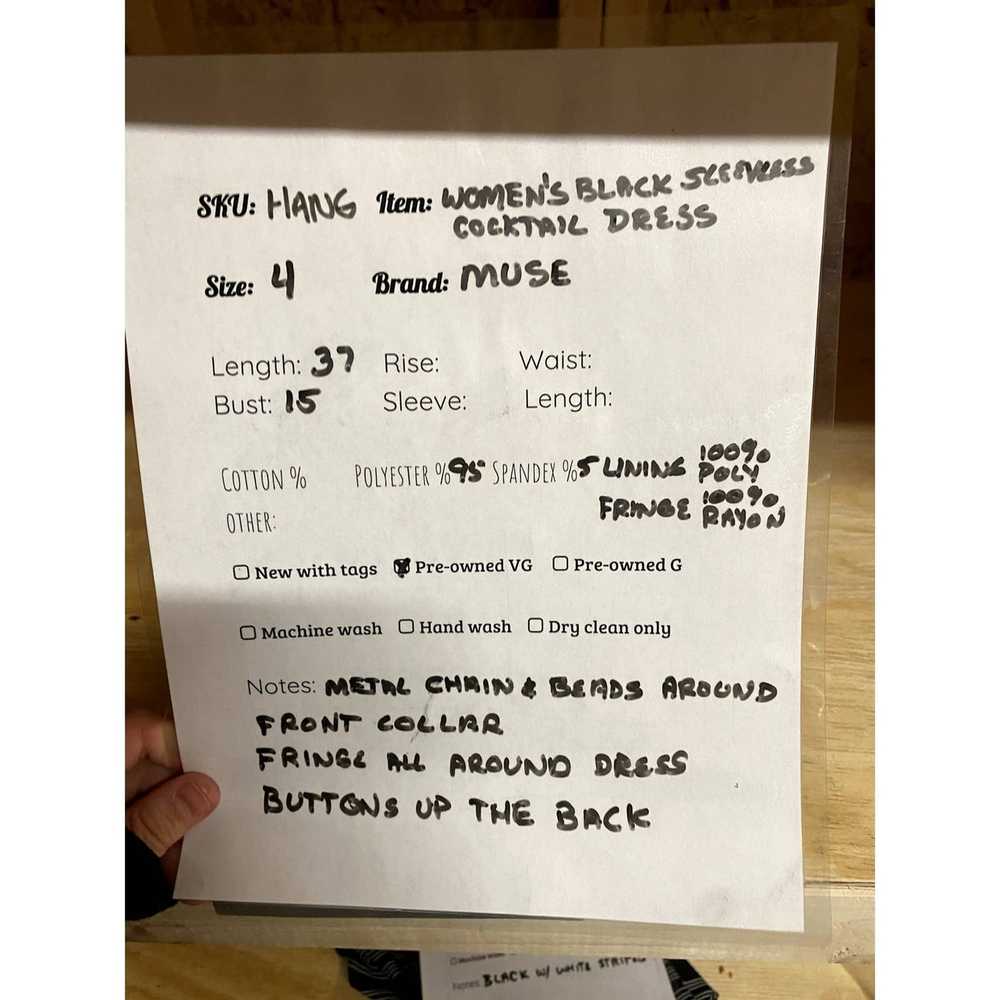 SKU: HANG Item: WOMEN'S BLACK SLEEVLESS
COCKTAIL DRESS
Size: 4 Brand: MUSE
Length: 37 Rise: Waist:
Bust: 15 Sleeve: Length:
COTTON % POLYESTER % 95 SPANDEX % 5 LINING 100% POLY
OTHER: FRINGE 100% RAYON
New with tags Pre-owned VG Pre-owned G
Machine wash Hand wash Dry clean only
Notes: METAL CHAIN & BEADS AROUND
FRONT COLLAR
FRINGE ALL AROUND DRESS
BUTTONS UP THE BACK
Notes: BLACK W/ WHITE STRIPES